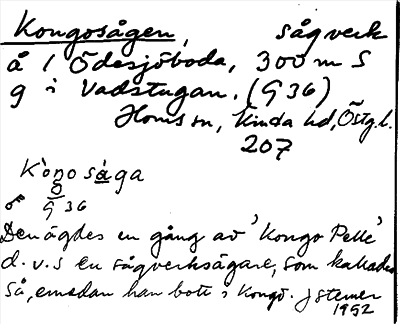 Kongosågen, sågverk
å 1 Ödesjöboda, 300 m S
g i Vadstugan. (G 36)
Horns sn, Kinda hd, Östg. l.
207
Kòŋosåga
G 36
Den ägdes en gång av 'Kongo Pelle'
d.v.s en sågverksägare, som kallades
så, emedan han bott i Kongo.
1952